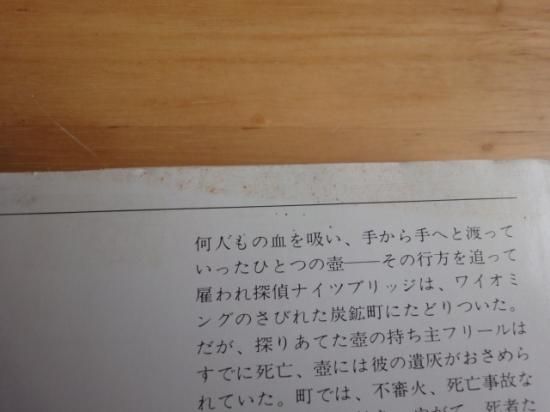 何人もの血を吸い、手から手へと渡って
いったひとつの壺――その行方を追って
雇われ探偵ナイツブリッジは、ワイオミ
ングのさびれた炭鉱町にたどりついた。
だが、探りあてた壺の持ち主フリールは
すでに死亡、壺には彼の遺灰がおさめら
れていた。町では、不審火、死亡事故な